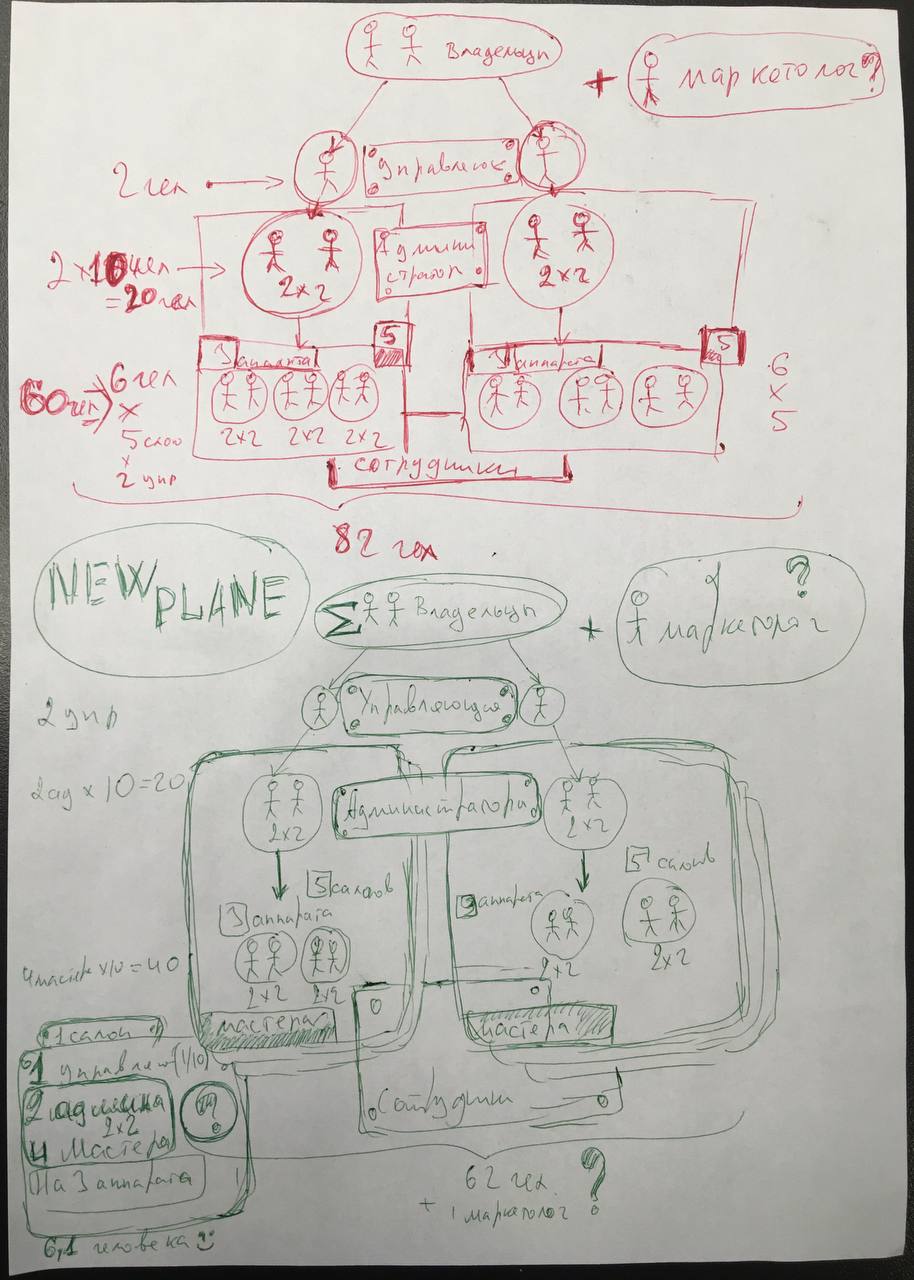 Владельцы
+ маркетолог?
2 чел
Управляющ
2 x 10 чел
= 20 чел
Админи
стратор
2x2
2x2
3 аппарата
5
3 аппарата
5
60 чел
6 чел
x
5 сало
x
2 упр
2x2 2x2 2x2
6
x
5
сотрудники
82 чел
NEW PLANE
Σ Владельцы
+ маркетолог ?
2 упр
Управляющие
2 ад x 10 = 20
Администратора
2x2
2x2
5 салонов
3 аппарата
5 салов
3 аппарата
2x2 2x2
2x2
2x2
4 мастера x 10 = 40
мастера
мастера
1 салон
1 управляющ (1/10)
2 админа
2x2
4 мастера
?
На 3 аппарата
Сотрудники
62 чел ?
+ 1 маркетолог
6,1 человека